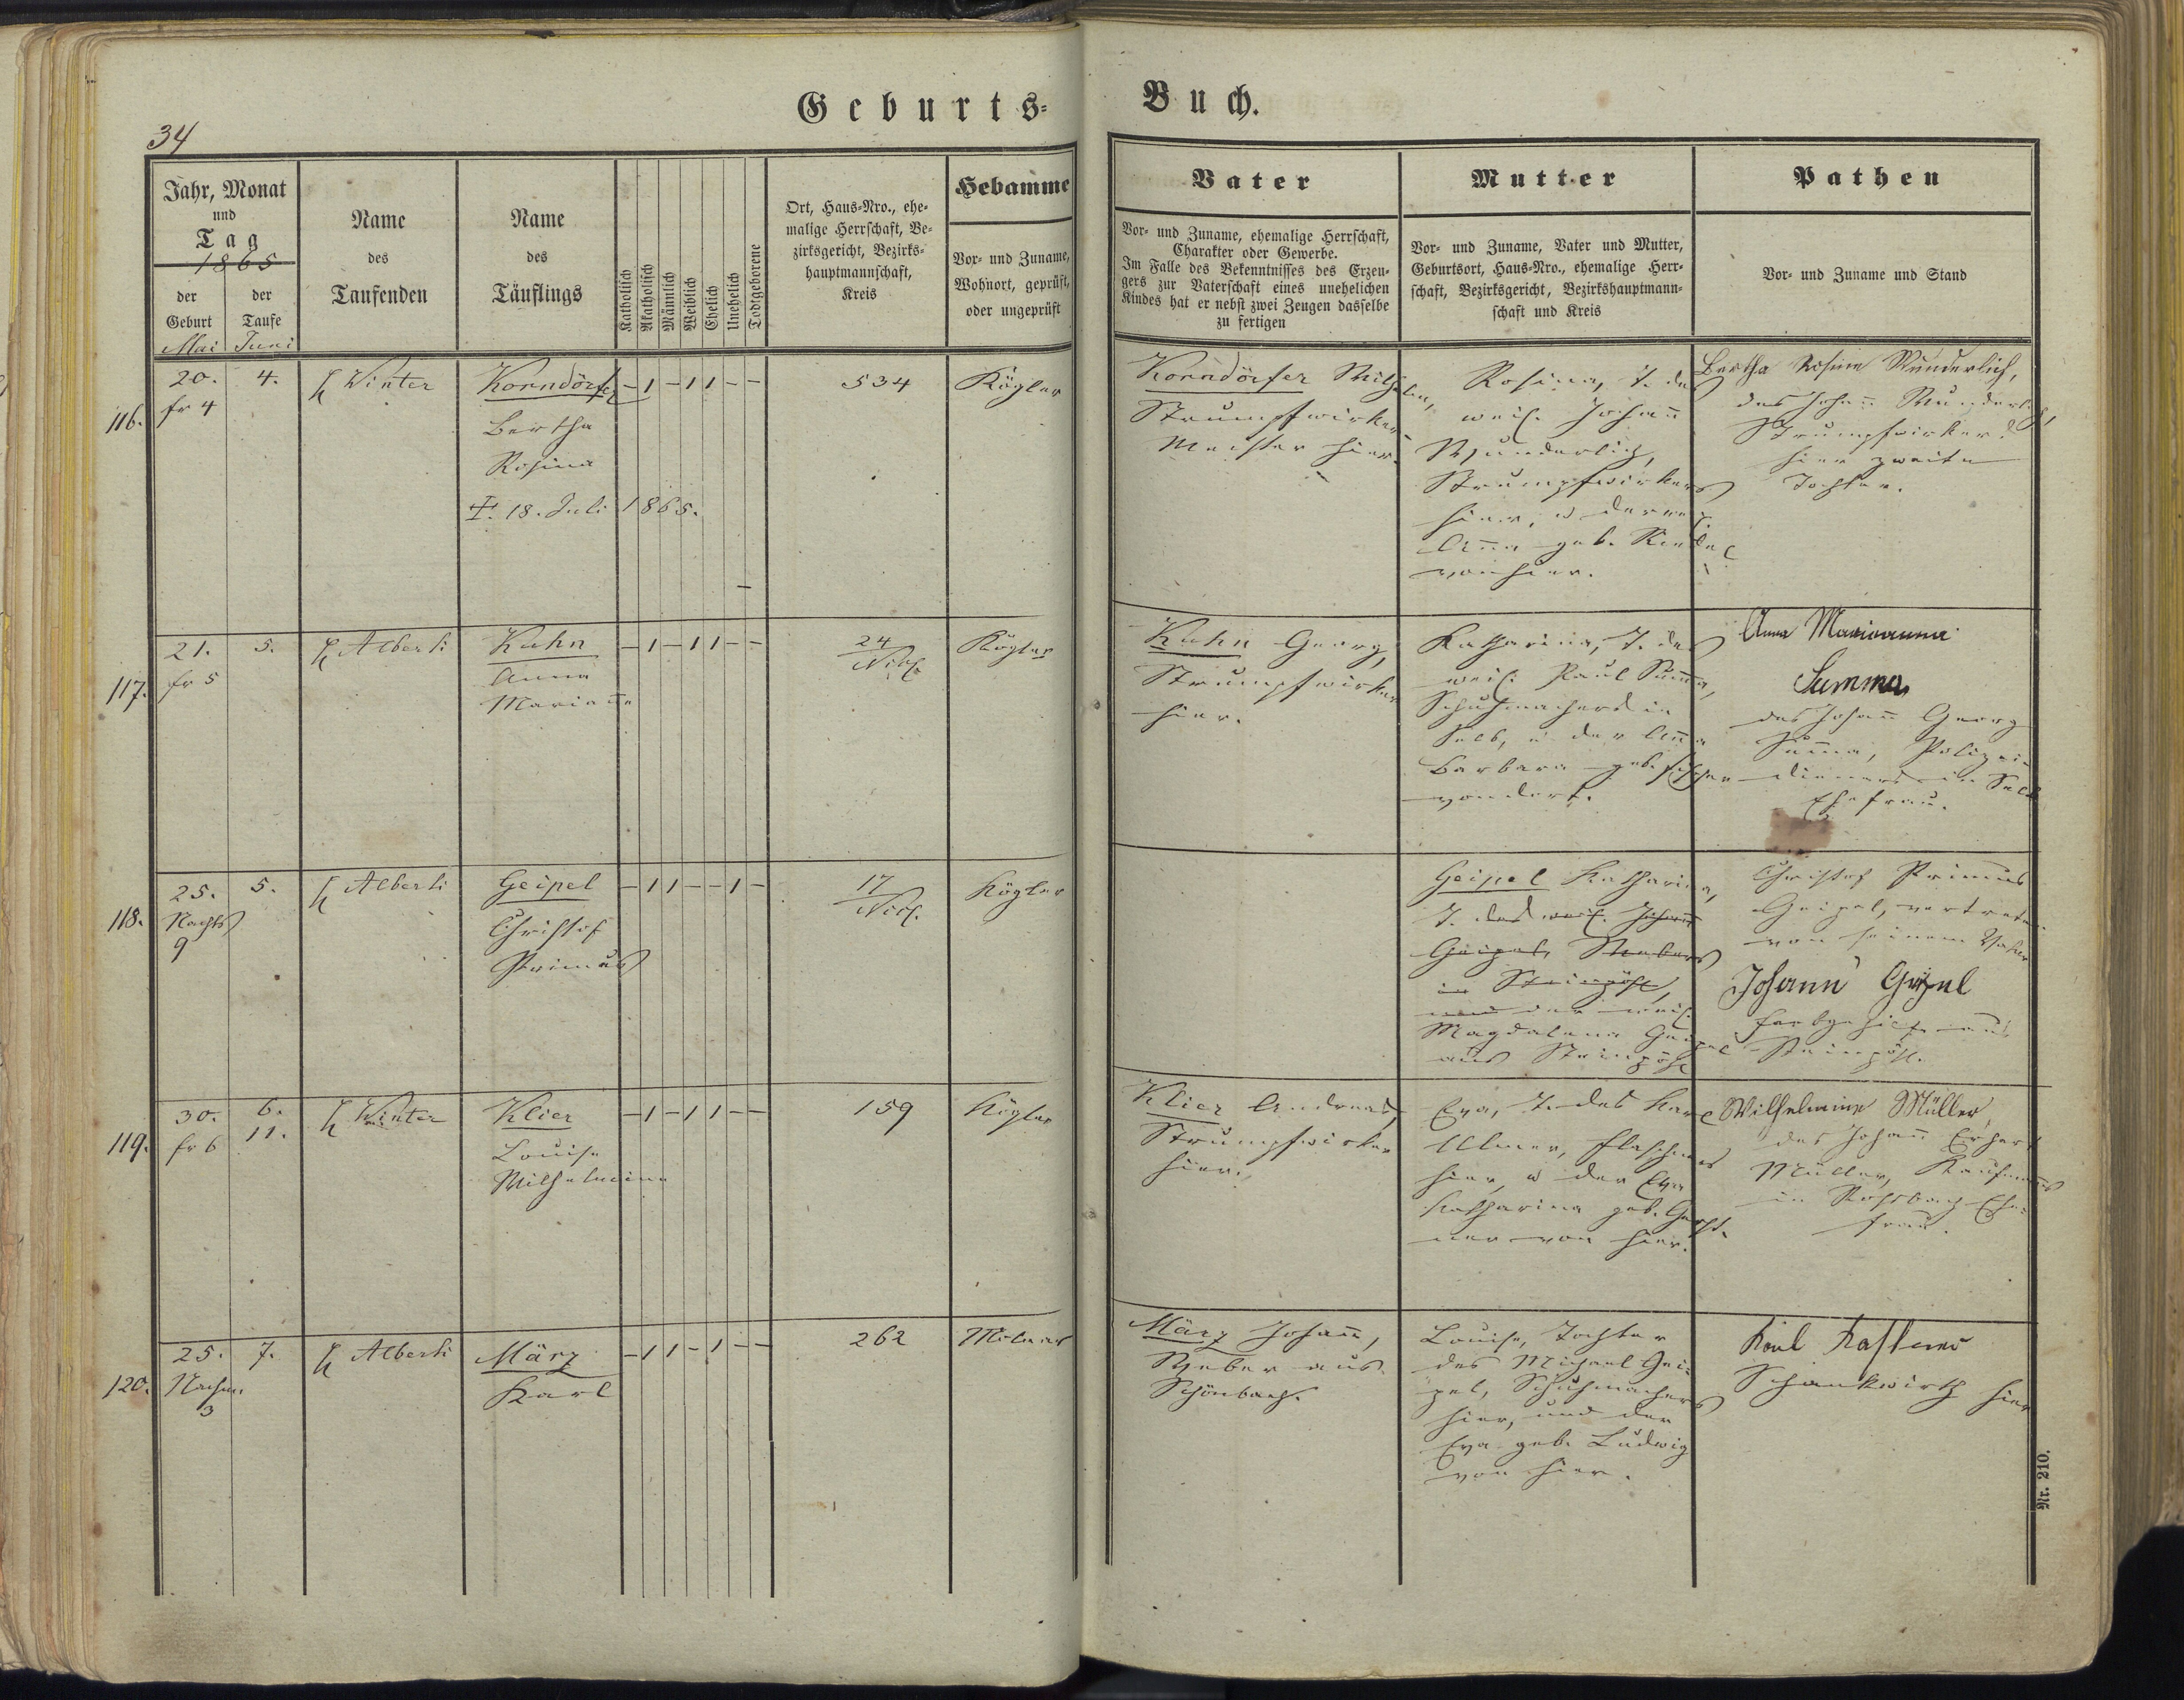 Geburts-
Buch.
34
Jahr, Monat
und
Tag
1865
der
Geburt
der
Taufe
Mai
Juni
Name
des
Taufenden
Name
des
Täuflings
Katholisch
Akatholisch
Männlich
Weiblich
Ehelich
Unehelich
Todtgeborene
Ort, Haus-Nro., ehe-
malige Herrschaft, Be-
zirksgericht, Bezirks-
hauptmannschaft,
Kreis
Hebamme
Vor- und Zuname,
Wohnort, geprüft,
oder ungeprüft
Vater
Vor- und Zuname, ehemalige Herrschaft,
Charakter oder Gewerbe.
Im Falle des Bekenntnisses des Erzeu-
gers zur Vaterschaft eines unehelichen
Kindes hat er nebst zwei Zeugen dasselbe
zu fertigen
Mutter
Vor- und Zuname, Vater und Mutter,
Geburtsort, Haus-Nro., ehemalige Herr-
schaft, Bezirksgericht, Bezirkshauptmann-
schaft und Kreis
Pathen
Vor- und Zuname und Stand
116.
20.
fr 4
4.
Winter
Korndörfer
Bertha
Rosina
‡. 18. Juli 1865.
– 1 – 1 1 – –
534
Kögler
Korndörfer Wilhelm,
Strumpfwirker
Meister hier.
Rosina, T. des
weil. Johann
Wunderlich,
Strumpfwirkers
hier, u deren
Anna geb. Künzel
von hier.
Bertha Rosine Wunderlich,
des Johann Wunderlich,
Strumpfwirkers
hier zweite
Tochter.
117.
21.
fr 5
5.
Alberti
Kuhn
Anna
Marianne
– 1 – 1 1 – –
24
Nickl.
Kögler
Kuhn Georg,
Strumpfwirker
hier.
Katharina, T. des
weil. Paul Summa,
Schuhmachers in
Selb, u der Anna
Barbara geb. Fischer
von dort.
Anna Marianna
Summa
des Johann Georg
Summa, Polizei-
dieners in Selb
Ehefrau.
118.
25.
Nachts
9
5.
Alberti
Geipel
Christof
Primus
– 1 1 – – 1 –
17
Nickl.
Kögler
Geipel Katharina,
T. des weil. Johann
Geipel, Webers
in Steinpöhl,
und der weil.
Magdalena Geipel
aus Steinpöhl
Christof Primus
Geipel, vertreten
von seinem Vater
Johann Geipel
aus
Steinpöhl.
119.
30.
fr 6
6.
11.
Winter
Klier
Louise
Wilhelmine
– 1 – 1 1 – –
159
Kögler
Klier Andreas,
Strumpfwirker
hier.
Eva, T. des Karl
Ulmer, Flaschners
hier, u der Eva
Katharina geb. Gerst-
ner von hier.
Wilhelmine Müller
des Johann Erhart
Müller, Kaufmanns
in Roßbach Ehe-
frau.
120.
25.
Nachm.
3
7.
Alberti
März
Karl
– 1 1 – 1 – –
262
März Johann,
Weber aus
Schönbach.
Louise, Tochter
des Michael Gei-
pel, Schuhmachers
hier, und der
Eva geb. Ludwig
von hier.
Karl Kastner
Schankwirth hier
Nr. 210.